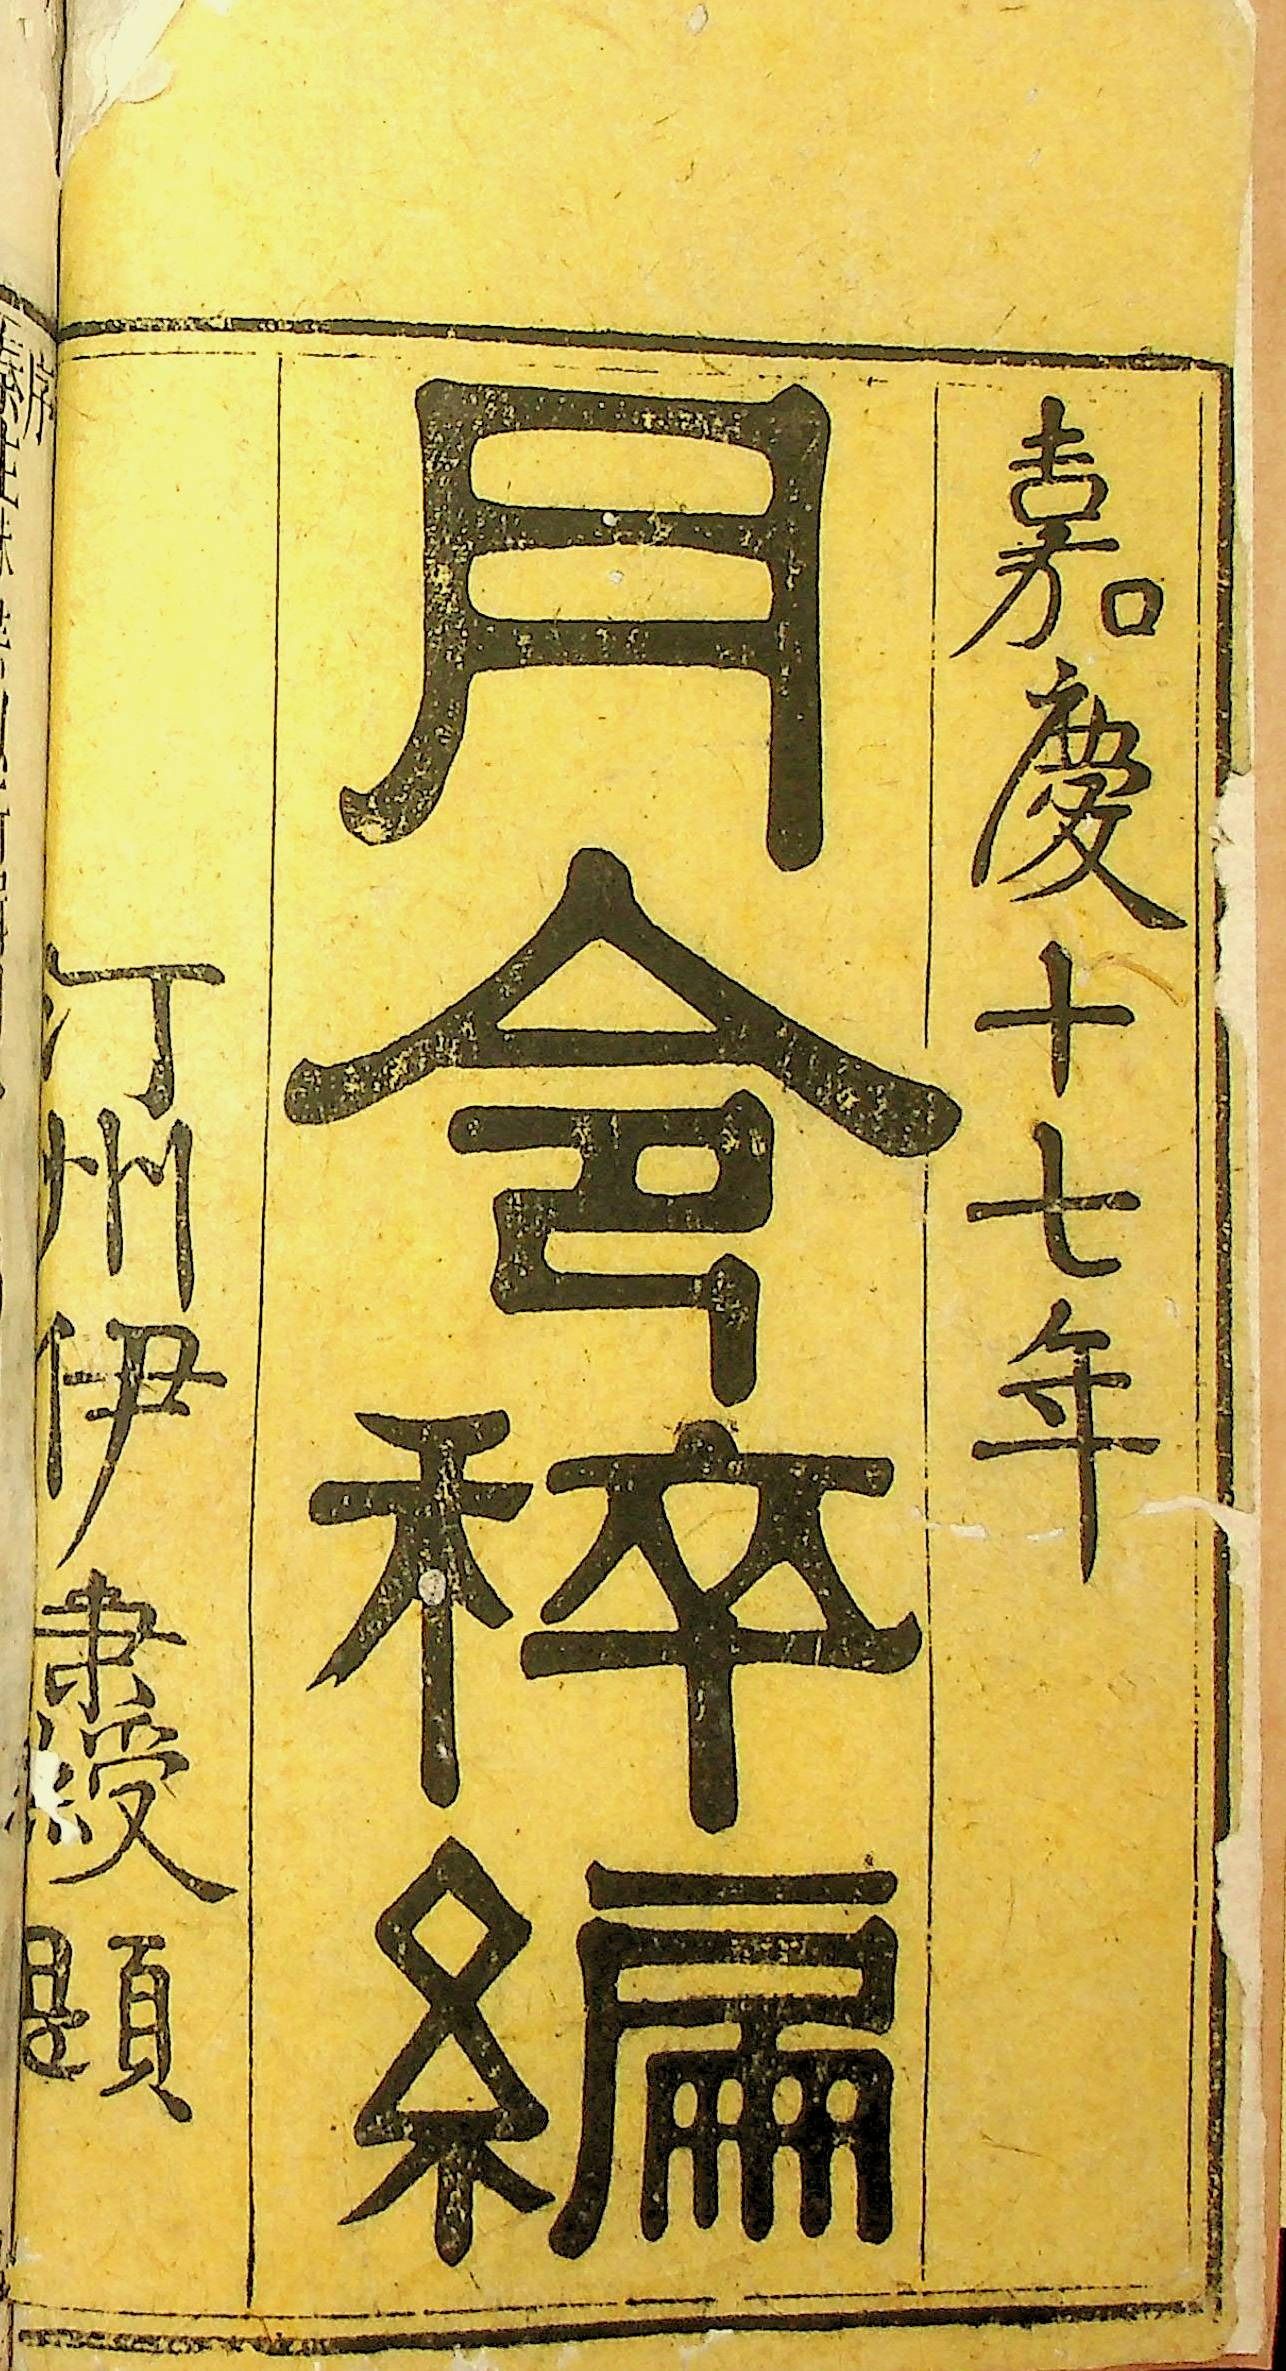 嘉慶十七年
月令稡編
汀州伊秉綬題